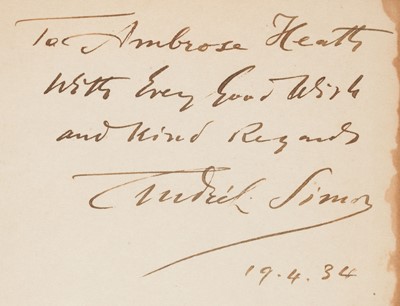 To Ambrose Heath
With Every Good Wish
and Kind Regards
André L. Simon
19.4.34